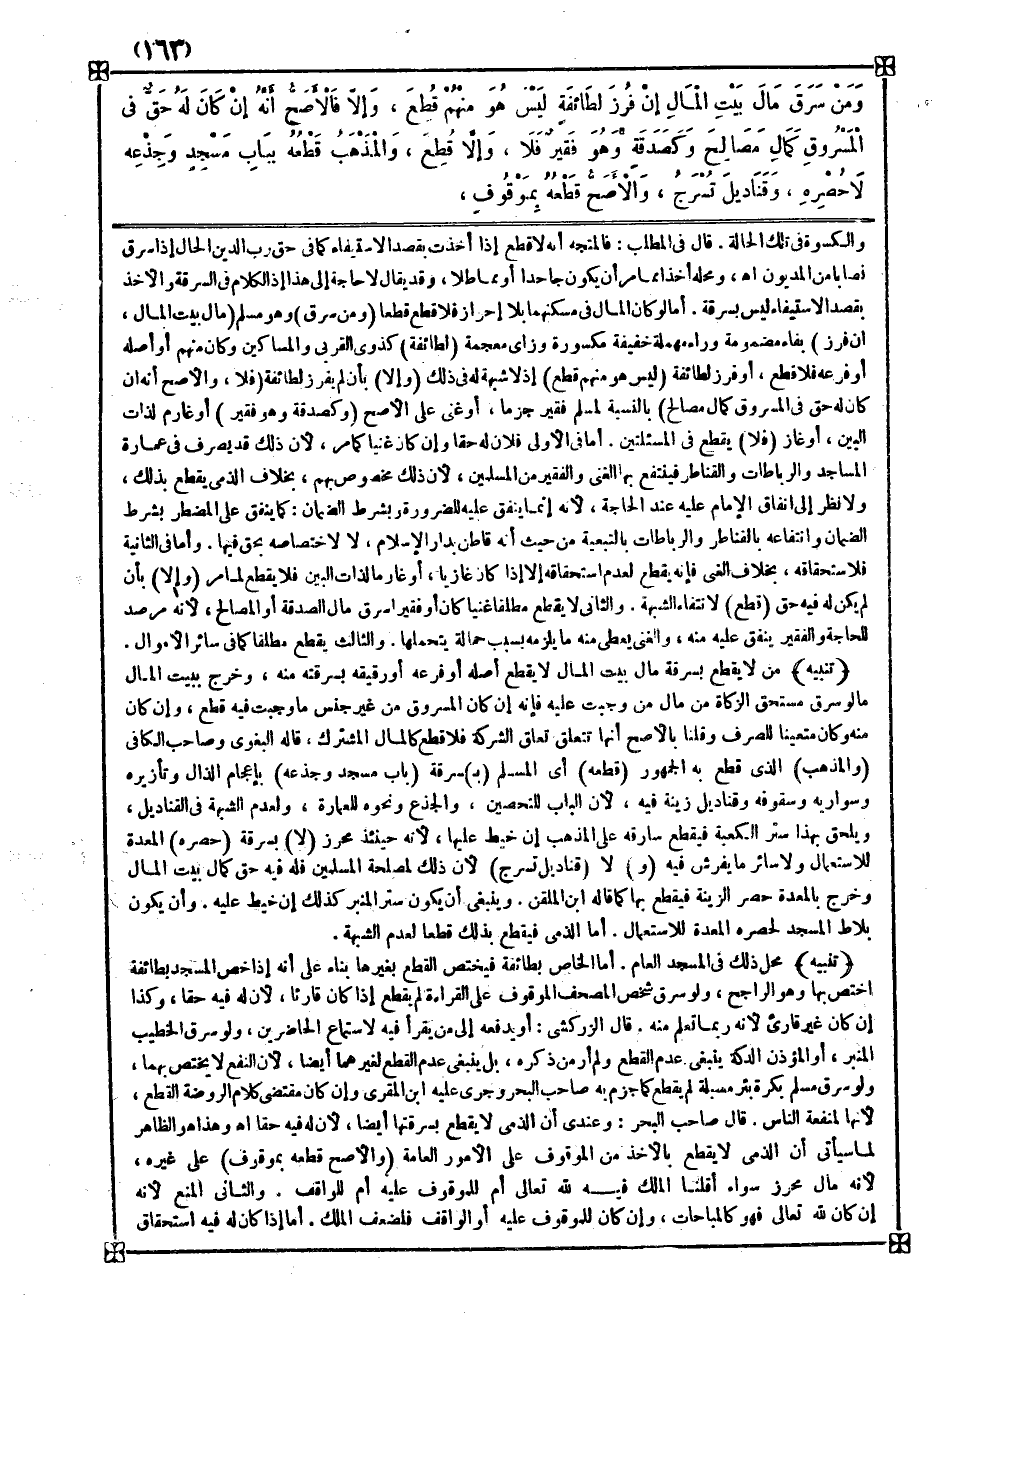 (١٦٣)
وَمَنْ سَرَقَ مَالَ بَيْتِ الْمَالِ إِنْ فُرِزَ لِطَائِفَةٍ لَيْسَ هُوَ مِنْهُمْ قُطِعَ ، وَإِلاَّ فَالْأَصَحُّ أَنَّهُ إِنْ كَانَ لَهُ حَقٌّ فِى
الْمَسْرُوقِ كَمَالِ مَصَالِحَ وَكَصَدَقَةٍ وَهُوَ فَقِيرٌ فَلَا ، وَإِلاَّ قُطِعَ ، وَالْمَذْهَبُ قَطْعُهُ بِبَابِ مَسْجِدٍ وَجِذْعِهِ
لَاحُصْرِهِ ، وَقَنَادِيلَ تُسْرَجُ ، وَالْأَصَحُّ قَطْعُهُ بِمَوْقُوفٍ ،
والكسوة فى تلك الحالة . قال فى المطلب : فالمتجه أنه لاقطع إذا أخذت بقصد الاستيفاء كما فى حق رب الدين الحال إذا سرق
نصابا من المديون اه ، ومحله أخذا مما مر أن يكون جاحدا أو مماطلا ، وقد يقال لاحاجة إلى هذا إذ الكلام فى السرقة والأخذ
بقصد الاستيفاء ليس بسرقة . أما لو كان المال فى مسكنهما بلا إحراز فلا قطع قطعا (ومن سرق) وهو مسلم (مال بيت المال ،
ان فرز ) بفاء مضمومة وراء مهملة خفيفة مكسورة وزاى معجمة (لطائفة) كذوى القربى والمساكين وكان منهم أو أصله
أو فرعه فلا قطع ، أو فرز لطائفة (ليس هو منهم قطع) إذ لا شبهة له فى ذلك (وإلا) بأن لم يفرز لطائفة (فلا ، والأصح أنه ان
كان له حق فى المسروق كمال مصالح) بالنسبة لمسلم فقير جزما ، أو غنى على الأصح (وكصدقة وهو فقير ) أو غارم لذات
البين ، أو غاز (فلا) يقطع فى المسئلتين . أما فى الأولى فلان له حقا وإن كان غنيا كما مر ، لأن ذلك قد يصرف فى عمارة
المساجد والرباطات والقناطر فينتفع بها الغنى والفقير من المسلمين ، لأن ذلك مخصوص بهم ، بخلاف الذمى يقطع بذلك ،
ولا نظر إلى انفاق الإمام عليه عند الحاجة ، لأنه إنما ينفق عليه للضرورة وبشرط الضمان : كما ينفق على المضطر بشرط
الضمان وانتفاعه بالقناطر والرباطات بالتبعية من حيث أنه قاطن بدار الإسلام ، لا لاختصاصه بحق فيها . وأما فى الثانية
فلاستحقاقه ، بخلاف الغنى فإنه يقطع لعدم استحقاقه إلا إذا كان غازيا ، أو غارما لذات البين فلا يقطع لما مر (وإلا) بأن
لم يكن له فيه حق (قطع) لانتفاء الشبهة . والثانى لا يقطع مطلقا غنيا كان أو فقيرا سرق مال الصدقة أو المصالح ، لأنه مرصد
للحاجة والفقير ينفق عليه منه ، والغنى يعطى منه ما يلزمه بسبب حمالة يتحملها . والثالث يقطع مطلقا كما فى سائر الأموال .
﴿تنبيه﴾ من لا يقطع بسرقة مال بيت المال لا يقطع أصله أو فرعه أو رقيقه بسرقته منه ، وخرج ببيت المال
مالو سرق مستحق الزكاة من مال من وجبت عليه فإنه إن كان المسروق من غير جنس ما وجبت فيه قطع ، وإن كان
منه وكان متعينا للصرف وقلنا بالأصح أنها تتعلق تعلق الشركة فلا قطع كالمال المشترك ، قاله البغوى وصاحب الكافى
(والمذهب) الذى قطع به الجمهور (قطعه) أى المسلم (بـ)سرقة (باب مسجد وجذعه) بإعجام الذال وتأزيره
وسواريه وسقوفه وقناديل زينة فيه ، لأن الباب للتحصين ، والجذع ونحوه للعمارة ، ولعدم الشبهة فى القناديل ،
ويلحق بهذا ستر الكعبة فيقطع سارقه على المذهب إن خيط عليها ، لأنه حينئذ محرز (لا) بسرقة (حصره) المعدة
للاستعمال ولا سائر ما يفرش فيه (و) لا (قناديل تسرج) لأن ذلك لمصلحة المسلمين فله فيه حق كمال بيت المال
وخرج بالمعدة حصر الزينة فيقطع بها كما قاله ابن الملقن . وينبغى أن يكون ستر المنبر كذلك إن خيط عليه . وأن يكون
بلاط المسجد لحصره المعدة للاستعمال . أما الذمى فيقطع بذلك قطعا لعدم الشبهة .
﴿تنبيه﴾ محل ذلك فى المسجد العام . أما الخاص بطائفة فيختص القطع بغيرها بناء على أنه إذا خص المسجد بطائفة
اختص بها وهو الراجح ، ولو سرق شخص المصحف الموقوف على القراءة لم يقطع إذا كان قارئا ، لأن له فيه حقا ، وكذا
إن كان غير قارئ لأنه ربما تعلم منه . قال الزركشى : أو يدفعه إلى من يقرأ فيه لاستماع الحاضرين ، ولو سرق الخطيب
المنبر ، أو المؤذن الدكة ينبغى عدم القطع ولم أر من ذكره ، بل ينبغى عدم القطع لغيرهما أيضا ، لأن النفع لا يختص بهما ،
ولو سرق مسلم بكرة بئر مسبلة لم يقطع كما جزم به صاحب البحر وجرى عليه ابن المقرى وإن كان مقتضى كلام الروضة القطع ،
لأنها لمنفعة الناس . قال صاحب البحر : وعندى أن الذمى لا يقطع بسرقتها أيضا ، لأن له فيه حقا اه وهذا هو الظاهر
لما سيأتى أن الذمى لا يقطع بالأخذ من الموقوف على الأمور العامة (والأصح قطعه بموقوف) على غيره ،
لأنه مال محرز سواء أقلنا الملك فيه لله تعالى أم للموقوف عليه أم للواقف . والثانى المنع لأنه
إن كان لله تعالى فهو كالمباحات ، وإن كان للموقوف عليه أو الواقف فلضعف الملك . أما إذا كان له فيه استحقاق